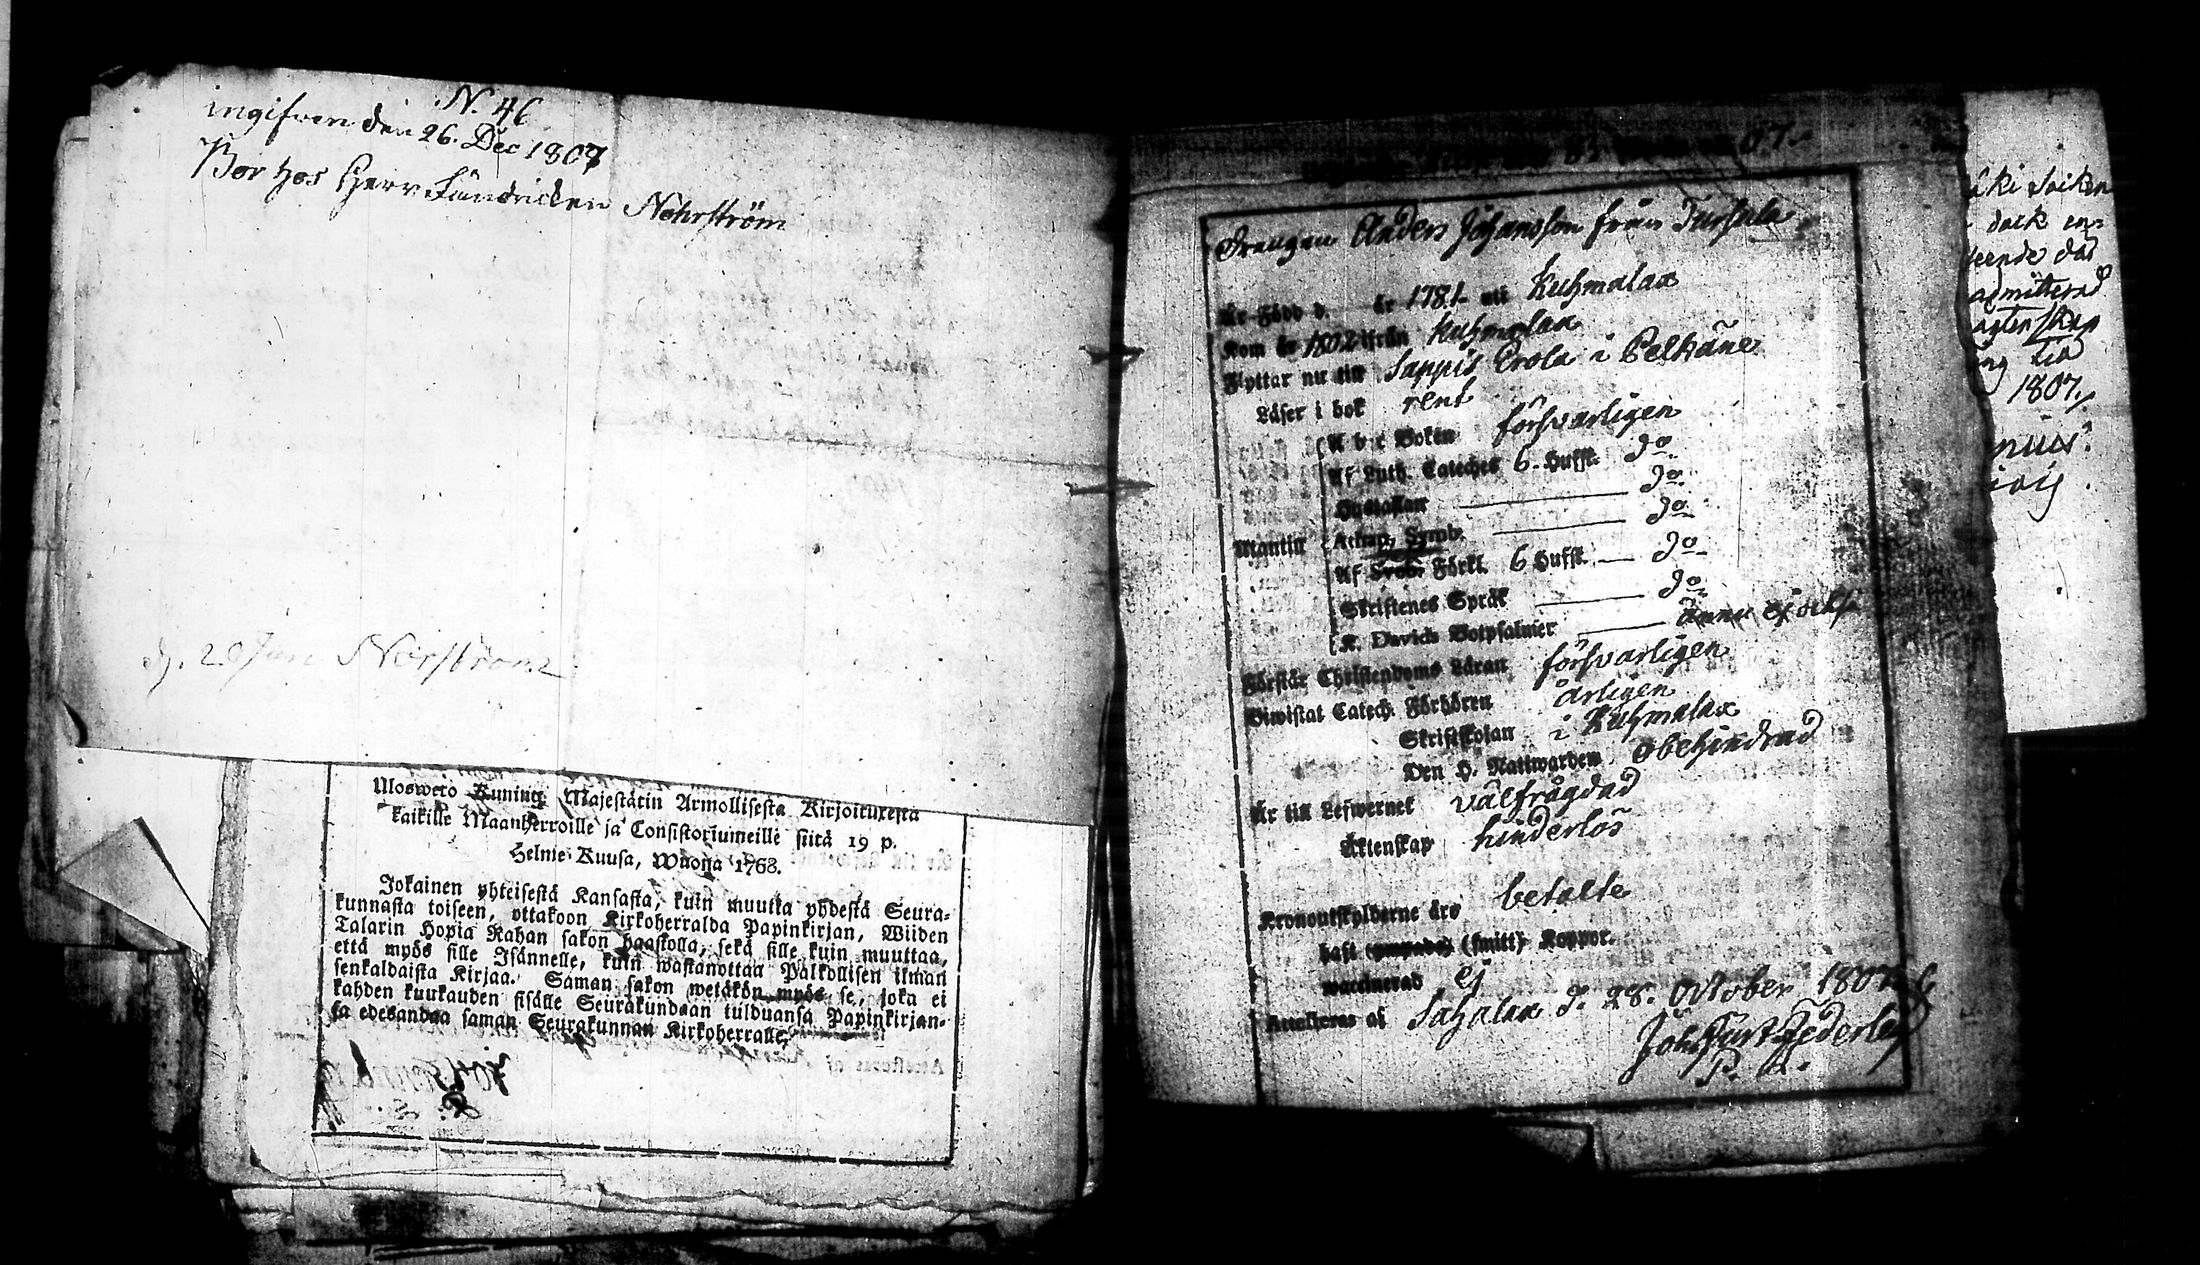 N. 46
ingifven den 26. Dec 1807
Bor hos Herr Fändricken Nohrström
d. 20 Jan Norström
Ulosweto Kuning. Majestätin Armollisesta Kirjoituxesta
kaikille Maanherroille ja Consistoriumeille siitä 19 p.
Helmi-Kuusa, Wuona 1768.
Jokainen yhteisestä Kansasta, kuin muutta yhdestä Seura-
kunnasta toiseen, ottakoon Kirkoherralda Papinkirjan, Wiiden
Talarin Hopia Rahan sakon haastolla, sekä sille kuin muuttaa,
että myös sille Isännelle, kuin wastanottaa Palkollisen ilman
senkaldaista Kirjaa. Saman sakon wetäkön myös se, joka ei
kahden kuukauden sisälle Seurakundaan tulduansa Papinkirjan-
sa edesandaa saman Seurakunnan Kirkoherralle.
Drengen Anders Johansson från Tursula
Är Född d. år 1781 uti Kuhmalax
Kom år 1802 ifrån Kuhmalax
Flyttar nu till Sappis Erola i Pelkäne
Läser i bok rent
A b c Boken försvarligen
Af Luth. Cateches 6. Hufst. do
Hustaflan do
Mantill Athan. Symb. do
Af Förkl. 6 Hufst. do
Skriftenes Språk do
K. Davids Botpsalmer ännu ej
Förstår Christendoms Läran försvarligen
Biwistat Catech. Förhören årligen
Skriftskolan i Kuhmalax
Den H. Nattwarden obehindrad
Är till Lefwernet välfrägdad
Äktenskap hinderlös
Kronoutskylderne äro betalte
haft (smitt) Koppor.
waccinerad ej
Attesteras af Sahalax d. 28. October 1807
P. L.
äki Socken
dock en-
teende då
admitterad
ägtenskap
ng til
1807.